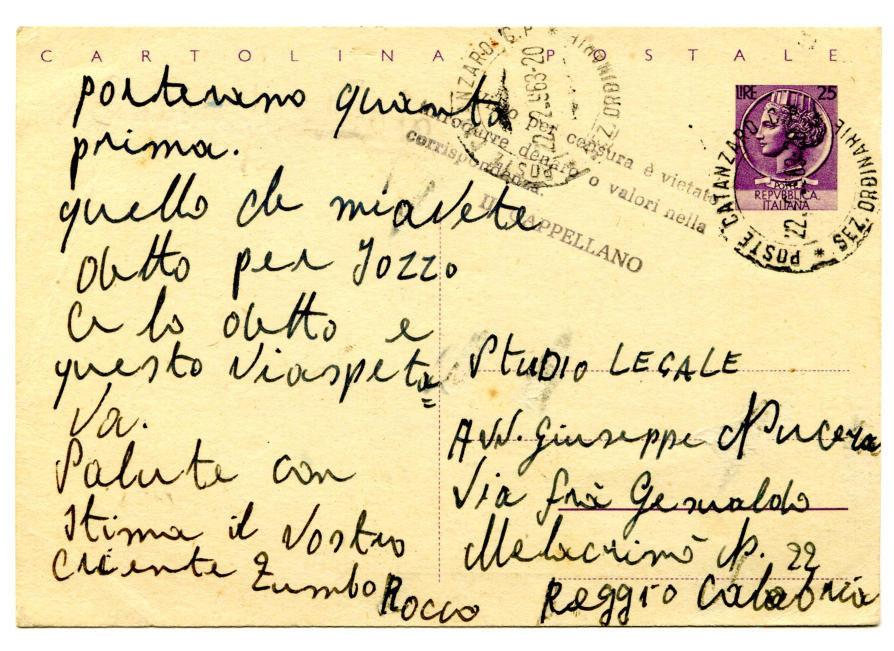 CARTOLINA POSTALE
porterano quanto
prima.
quello che miavete
detto per Iozzo
Ce lo detto e
questo Viaspeta
Va.
Salute con
Stima il Vostro
Criente Zumbo Rocco
Visto per censura è vietato
introdurre denaro o valori nella
corrispondenza.
IL CAPPELLANO
LIRE 25
POSTE
REPVBBLICA
ITALIANA
POSTE CATANZARO C.P. * SEZ. ORDINARIE
STUDIO LEGALE
Avv. Giuseppe Nucera
Via frà Gesualdo
Melacrinò N. 22
Reggio Calabria